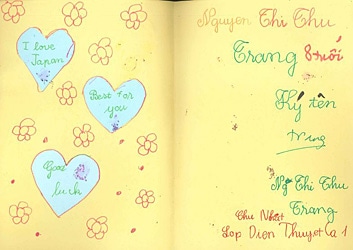 I love
Japan
Best for
you
Good
luck
Nguyen Thi Thu
Trang 8 tuổi
Ký tên
Trang
Ng Thi Thu
Trang
Thu Nhất
Lop Dien Thuyet Ca 1